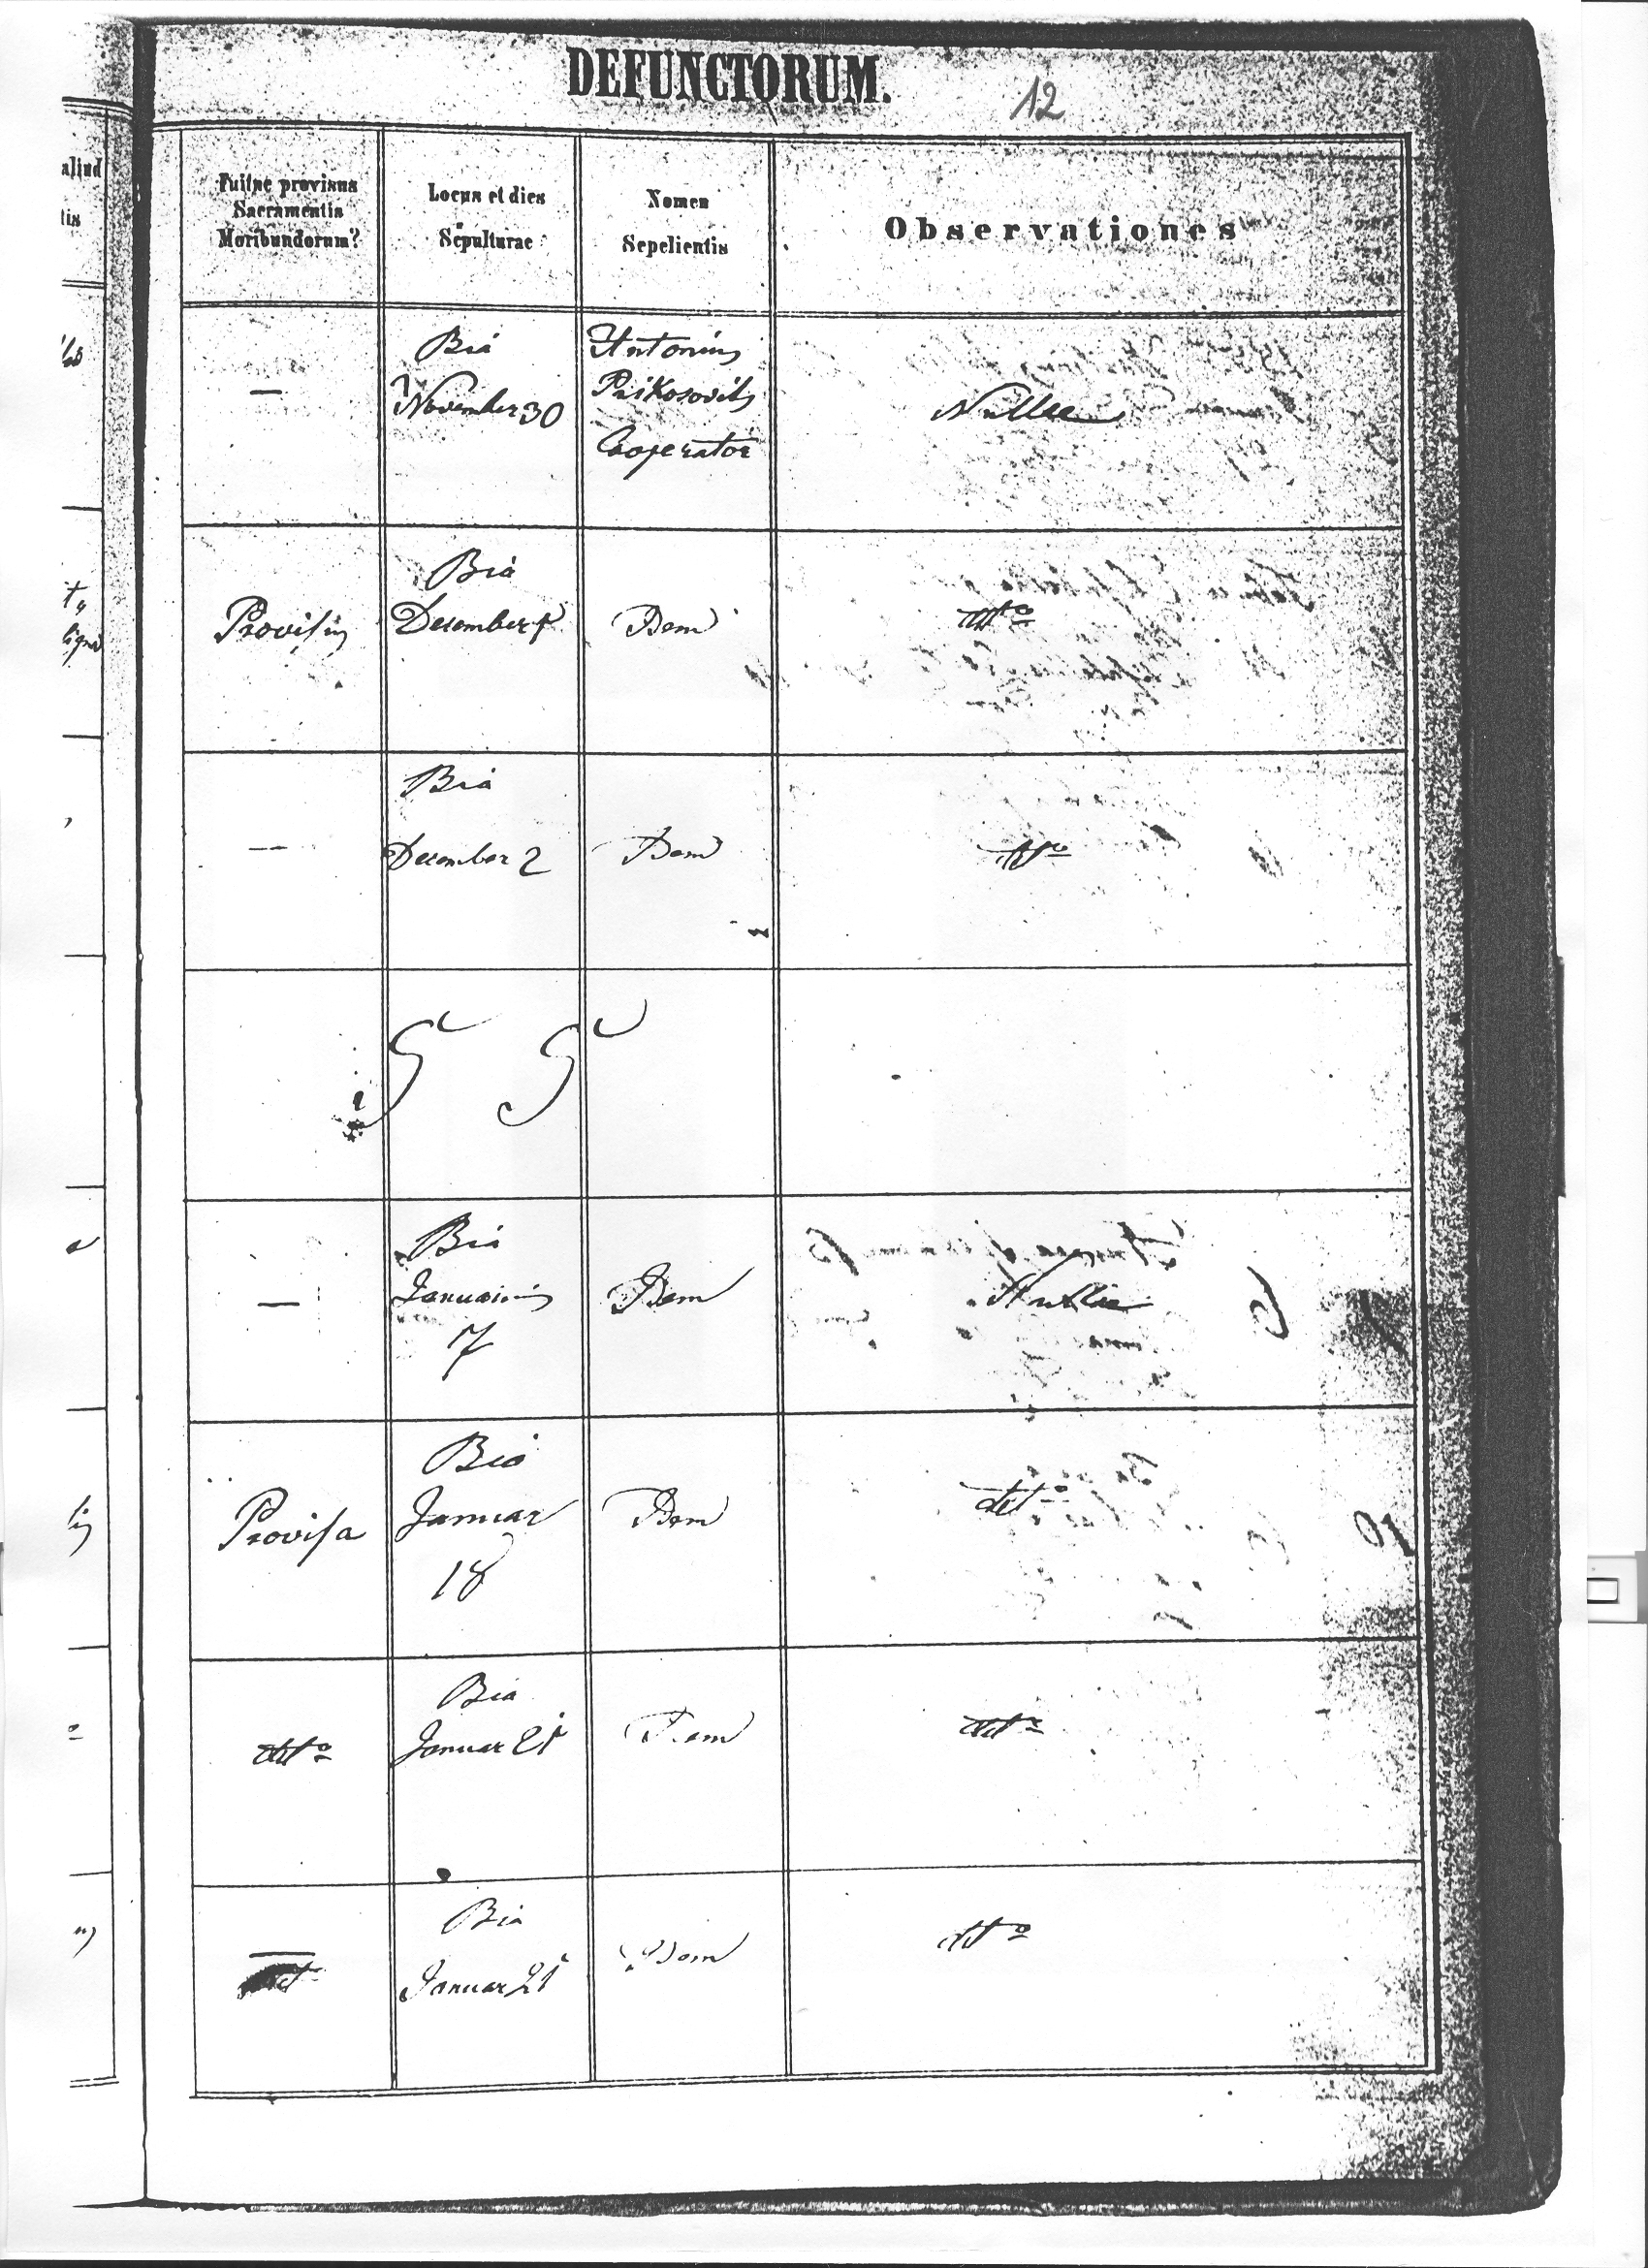 DEFUNCTORUM.
12
aliud
tis
Fuitne provisus
Sacramentis
Moribundorum?
Locus et dies
Sepulturae
Nomen
Sepelientis
Observationes
—
Bia
November 30
Antonius
Cooperator
Nullae
Provisus
Bia
December 1
Idem
dtto
—
Bia
December 2
Idem
dtto
—
Bia
Januarius
7
Idem
Nullae
Provisa
Bia
Januar
18
Idem
detto
detto
Bia
Januar 21
Idem
detto
—
Bia
Januar 21
Idem
dtto